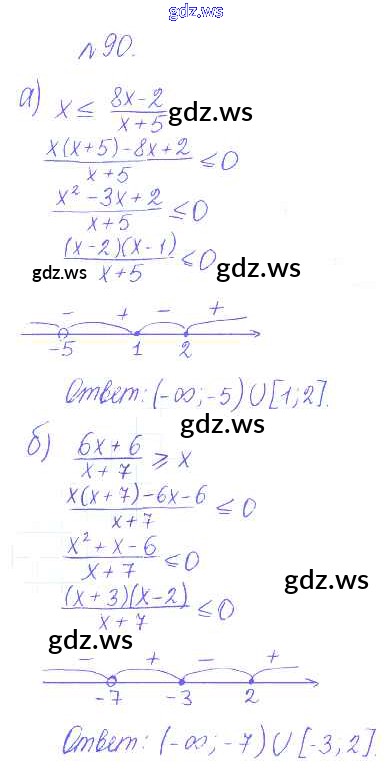 gdz.ws
№90.
а) x ≤ (8x-2)/(x+5) gdz.ws
(x(x+5)-8x+2)/(x+5) ≤ 0
(x²-3x+2)/(x+5) ≤ 0
gdz.ws ((x-2)(x-1))/(x+5) ≤ 0 gdz.ws
- + - +
-5 1 2
Ответ: (-∞; -5) ∪ [1; 2].
gdz.ws
б) (6x+6)/(x+7) ≥ x
(x(x+7)-6x-6)/(x+7) ≤ 0
(x²+x-6)/(x+7) ≤ 0
gdz.ws
((x+3)(x-2))/(x+7) ≤ 0
gdz.ws
- + - +
-7 -3 2
Ответ: (-∞; -7) ∪ [-3; 2].
gdz.ws